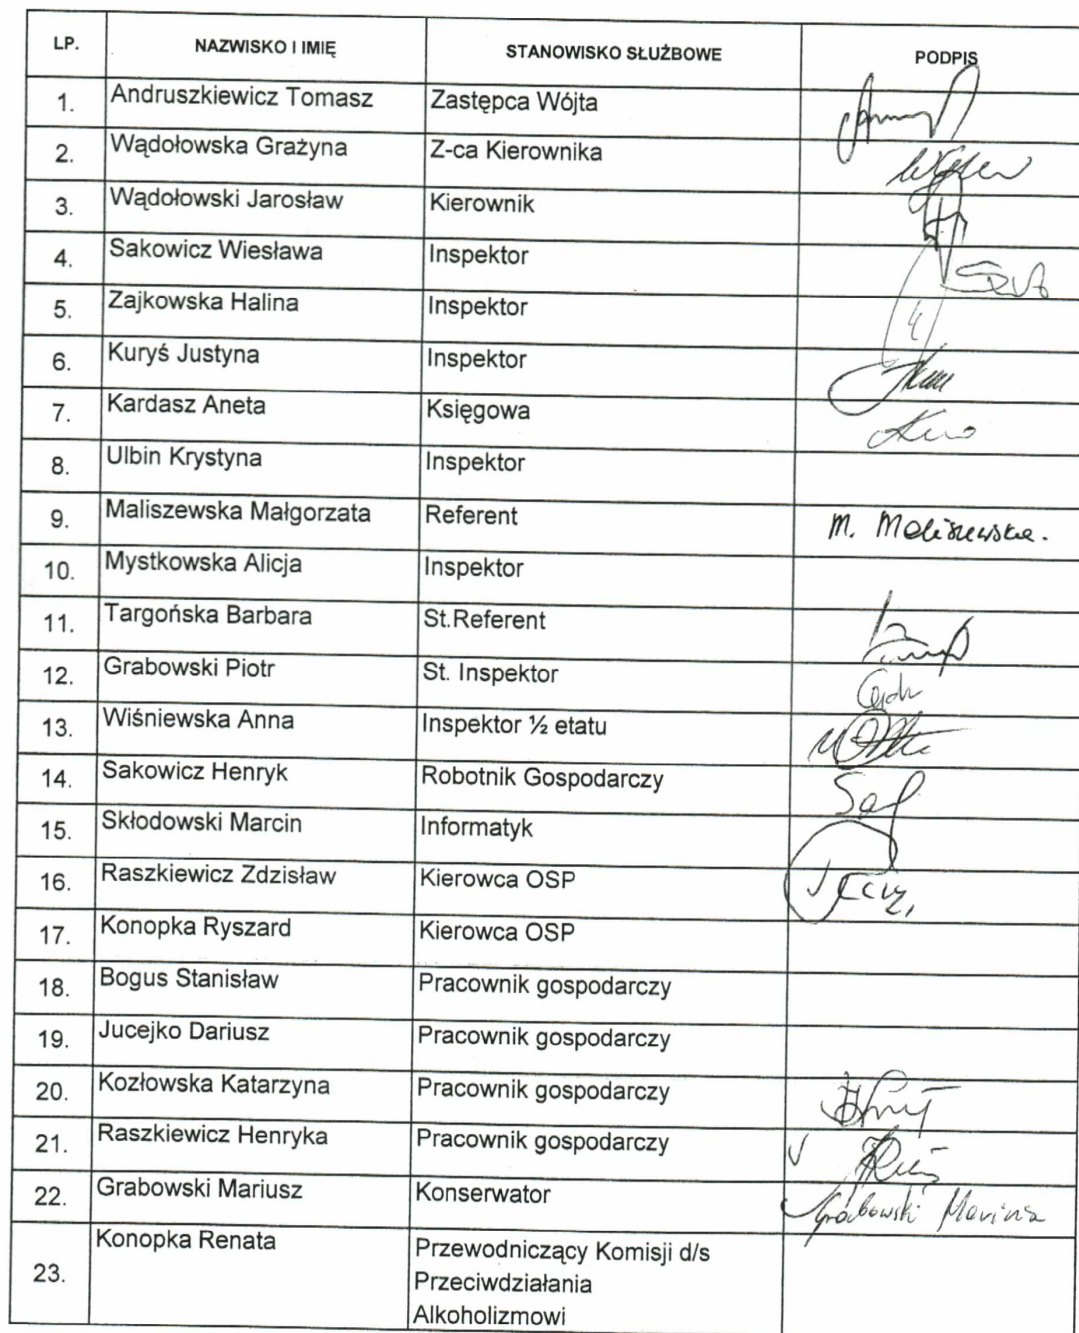 LP. NAZWISKO I IMIĘ STANOWISKO SŁUŻBOWE PODPIS
1. Andruszkiewicz Tomasz Zastępca Wójta
2. Wądołowska Grażyna Z-ca Kierownika
3. Wądołowski Jarosław Kierownik
4. Sakowicz Wiesława Inspektor
5. Zajkowska Halina Inspektor
6. Kuryś Justyna Inspektor
7. Kardasz Aneta Księgowa
8. Ulbin Krystyna Inspektor
9. Maliszewska Małgorzata Referent M. Maliszewska.
10. Mystkowska Alicja Inspektor
11. Targońska Barbara St.Referent
12. Grabowski Piotr St. Inspektor
13. Wiśniewska Anna Inspektor ½ etatu
14. Sakowicz Henryk Robotnik Gospodarczy
15. Skłodowski Marcin Informatyk
16. Raszkiewicz Zdzisław Kierowca OSP
17. Konopka Ryszard Kierowca OSP
18. Bogus Stanisław Pracownik gospodarczy
19. Jucejko Dariusz Pracownik gospodarczy
20. Kozłowska Katarzyna Pracownik gospodarczy
21. Raszkiewicz Henryka Pracownik gospodarczy
22. Grabowski Mariusz Konserwator Grabowski Mariusz
23. Konopka Renata Przewodniczący Komisji d/s
Przeciwdziałania
Alkoholizmowi